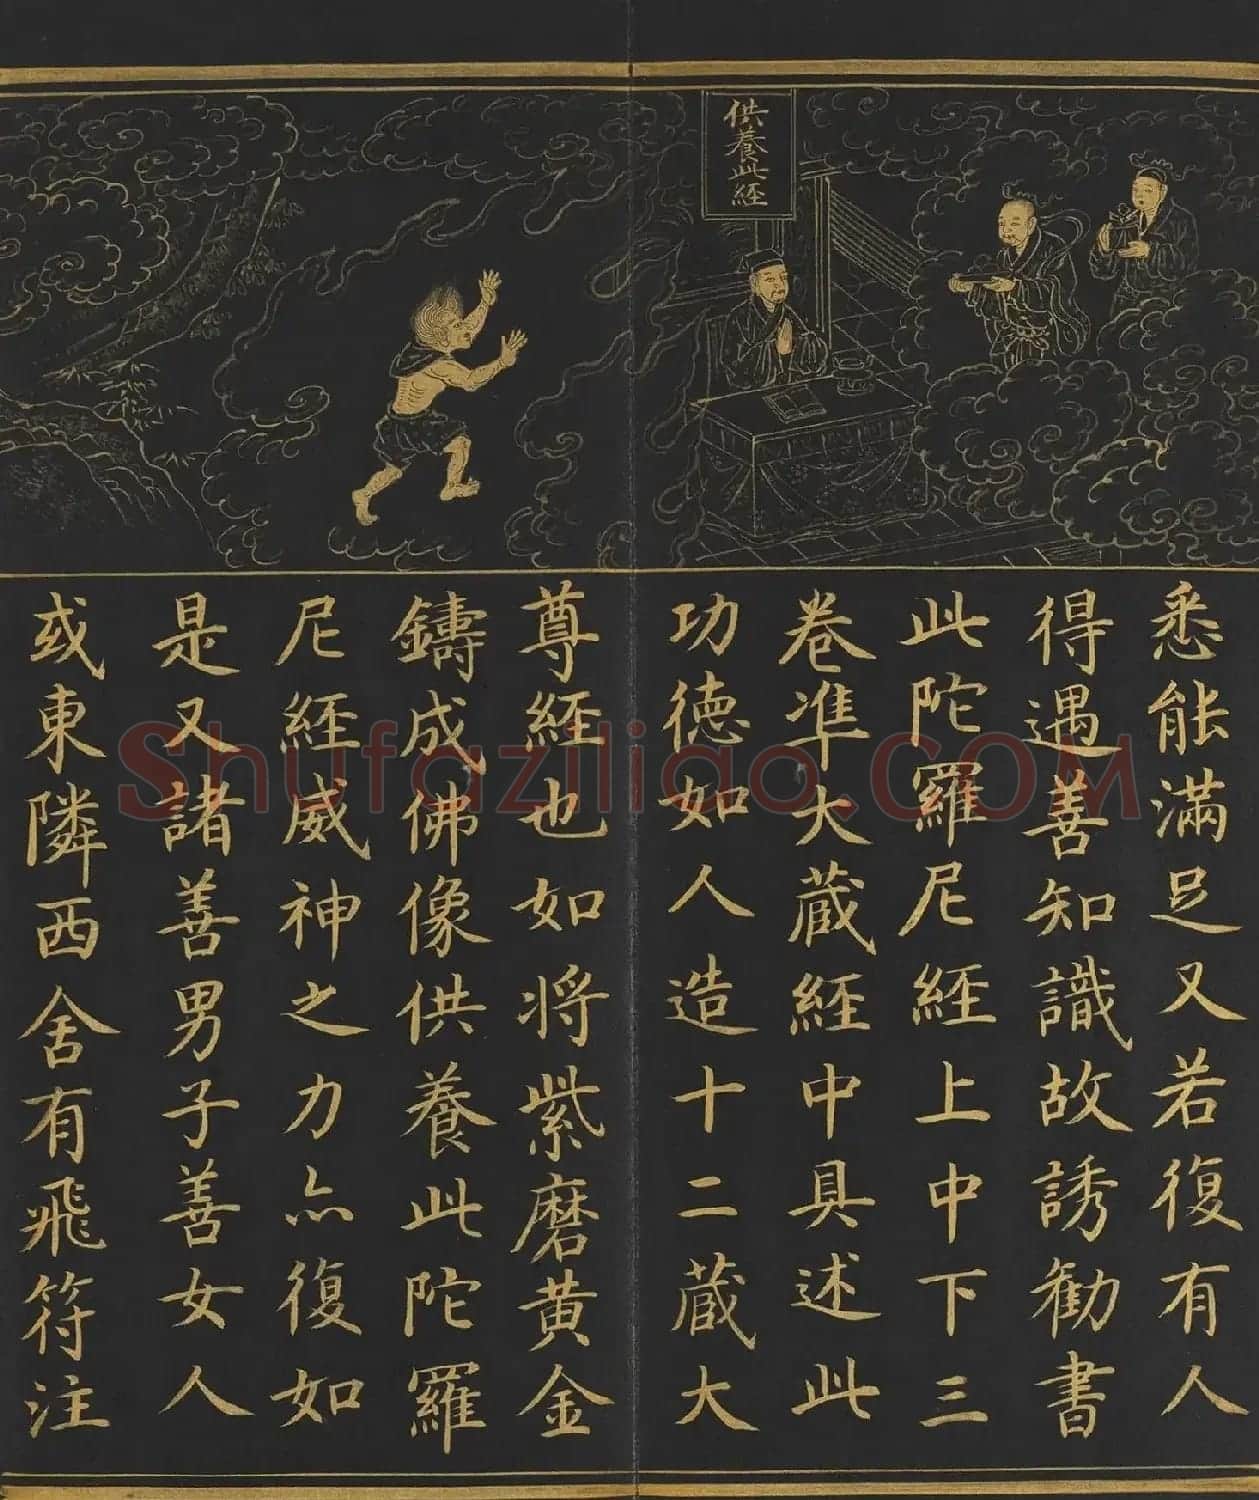 供養此經
悉能滿足又若復有人
得遇善知識故誘勸書
此陀羅尼經上中下三
卷准大蔵經中具述此
功徳如人造十二蔵大
尊經也如将紫磨黄金
鑄成佛像供養此陀羅
尼經威神之力亦復如
是又諸善男子善女人
或東隣西舍有飛符注
Shufaziliao.COM